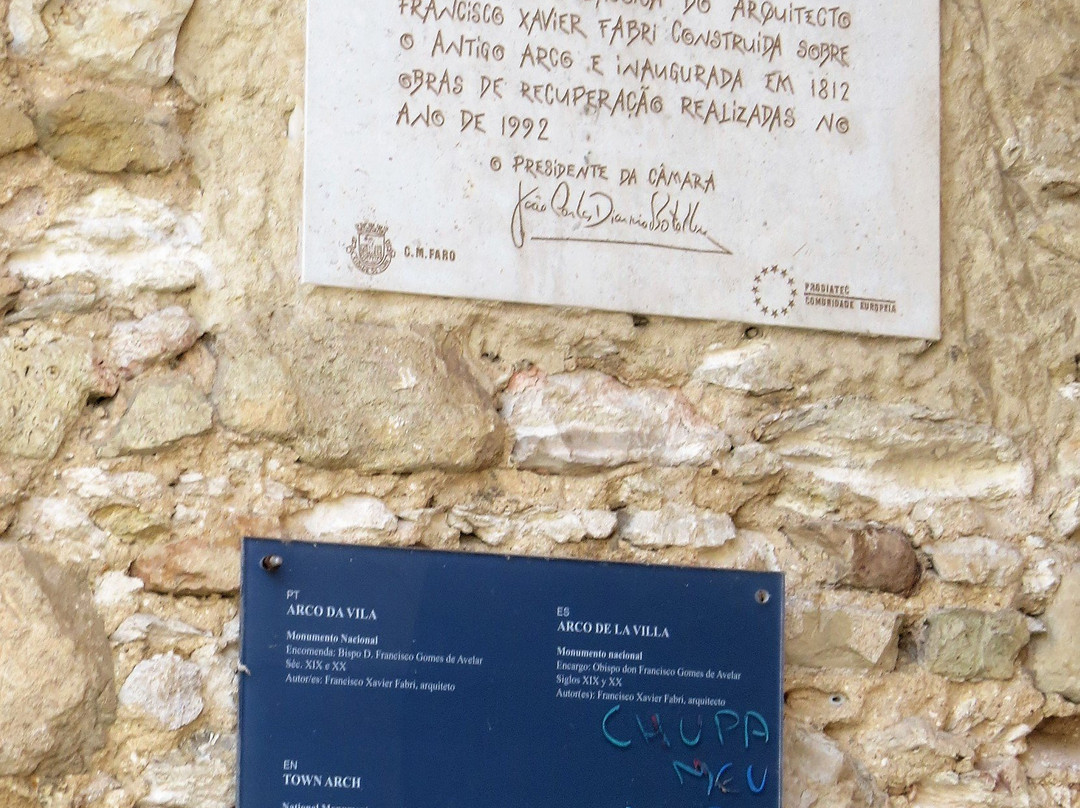 DO ARQUITECTO
FRANCISCO XAVIER FABRI CONSTRUIDA SOBRE
O ANTIGO ARCO E INAUGURADA EM 1812
OBRAS DE RECUPERAÇÃO REALIZADAS NO
ANO DE 1992
O PRESIDENTE DA CÂMARA
C.M. FARO
PRODIATEC
COMUNIDADE EUROPEIA
PT
ARCO DA VILA
Monumento Nacional
Encomenda: Bispo D. Francisco Gomes de Avelar
Séc. XIX e XX
Autor/es: Francisco Xavier Fabri, arquiteto
ES
ARCO DE LA VILLA
Monumento nacional
Encargo: Obispo don Francisco Gomes de Avelar
Siglos XIX y XX
Autor(es): Francisco Xavier Fabri, arquitecto
CHUPA
MEU
EN
TOWN ARCH
National Monument